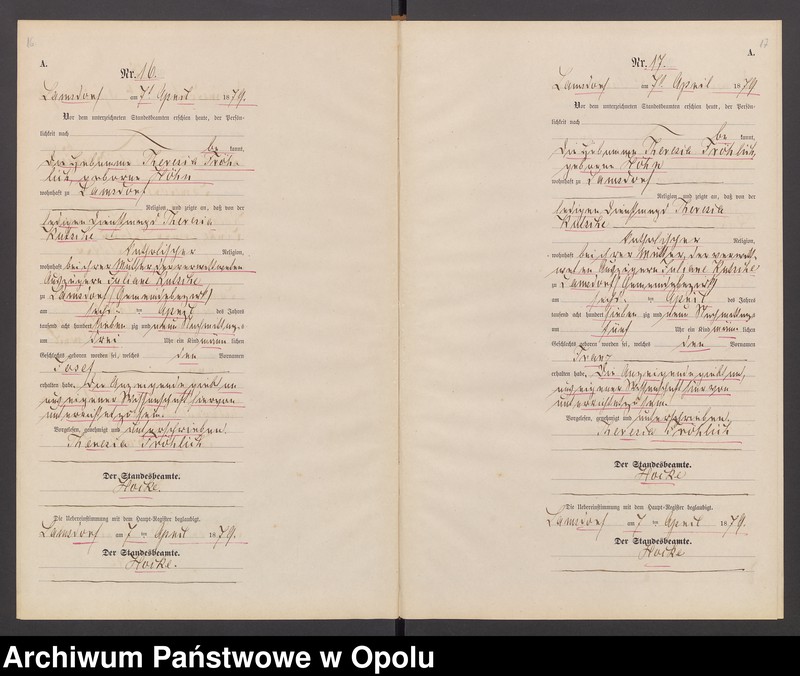 16
A.
Nr. 16.
Lamsdorf am 7t April 1879.
Vor dem unterzeichneten Standesbeamten erschien heute, der Persön-
lichkeit nach
be kannt,
die Hebamme Theresia Fröh-
lich, geborne Höhn
wohnhaft zu Lamsdorf
Religion, und zeigte an, daß von der
ledigen Dienstmagd Theresia
Kutsche
katholischer Religion,
wohnhaft bei ihrer Mutter der verwittweten
Auszügerin Juliane Kutsche
zu Lamsdorf (Gemeindebezirk)
am sechsten April des Jahres
tausend acht hundert sieben zig und neun Nachmittags
um drei Uhr ein Kind männlichen
Geschlechts geboren worden sei, welches den Vornamen
Josef
erhalten habe. Die Anzeigende giebt an
aus eigener Wissenschaft hiervon
unterrichtet zu sein.
Vorgelesen, genehmigt und unterschrieben.
Theresia Fröhlich
Der Standesbeamte.
Hocke.
Die Uebereinstimmung mit dem Haupt-Register beglaubigt.
Lamsdorf am 7 ten April 1879.
Der Standesbeamte.
Hocke.
17
A.
Nr. 17.
Lamsdorf am 7t April 1879
Vor dem unterzeichneten Standesbeamten erschien heute, der Persön-
lichkeit nach
be kannt,
die Hebamme Theresia Fröhlich,
geborne Höhn
wohnhaft zu Lamsdorf
Religion, und zeigte an, daß von der
ledigen Dienstmagd Theresia
Kutsche
katholischer Religion,
wohnhaft bei ihrer Mutter, der verwitt-
weten Auszügerin Juliane Kutsche
zu Lamsdorf (Gemeindebezirk)
am sechsten April des Jahres
tausend acht hundert sieben zig und neun Nachmittags
um fünf Uhr ein Kind männlichen
Geschlechts geboren worden sei, welches den Vornamen
Franz
erhalten habe. Die Anzeigende giebt an,
aus eigener Wissenschaft hiervon
unterrichtet zu sein.
Vorgelesen, genehmigt und unterschrieben.
Theresia Fröhlich
Der Standesbeamte.
Hocke
Die Uebereinstimmung mit dem Haupt-Register beglaubigt.
Lamsdorf am 7 ten April 1879.
Der Standesbeamte.
Hocke
Archiwum Państwowe w Opolu